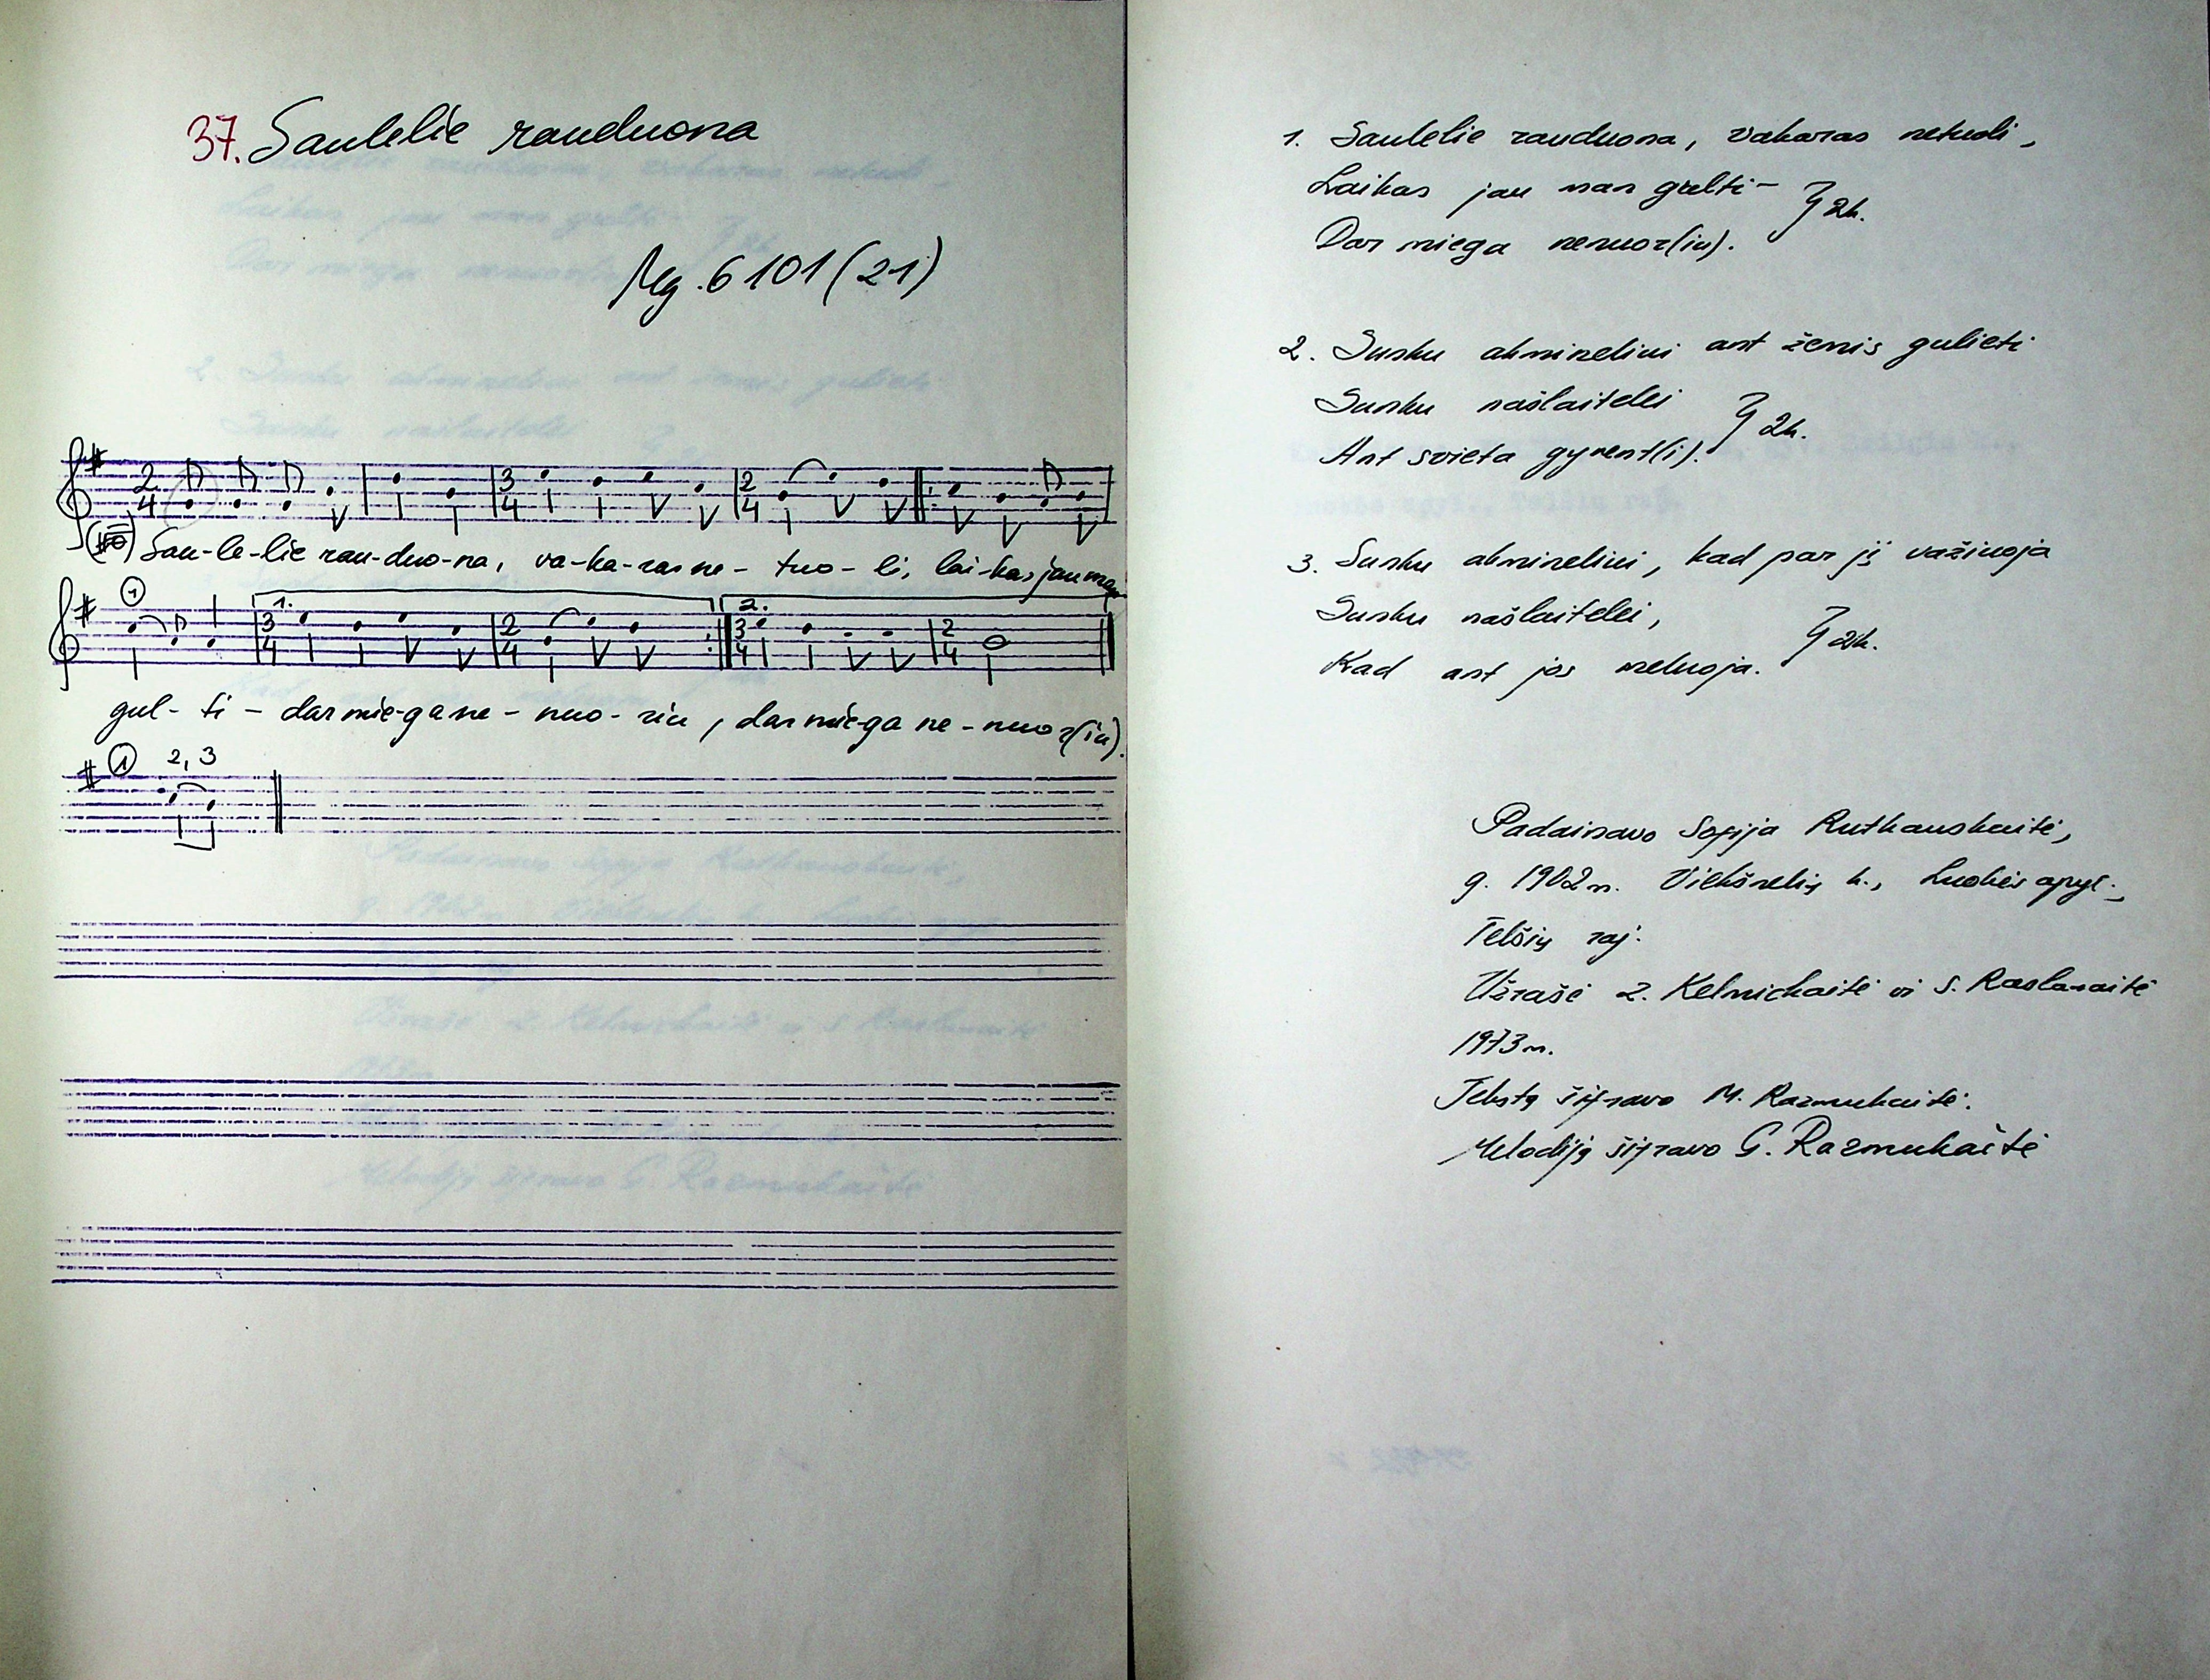 37. Saulelie rauduona
Mg. 6101 (21)
2 4 3 4 2 4
Sau-le-lie rau-duo-na, va-ka-ras ne- tuo- li, lai-kas jau man
1 1. 3 4 2 4 2. 3 4 2 4
gul- ti - dar mie-ga ne- nuo- riu, dar mie-ga ne-nuor(iu).
1 2, 3
1. Saulelie rauduona, vakaras netuoli,
Laikas jau man gulti- } 2k.
Dar miega nenuor(iu).
2. Sunku akmineliui ant žemis gulieti
Sunku našlaitelei } 2k.
Ant svieta gyvent(i).
3. Sunku akmineliui, kad par jį važiuoja
Sunku našlaitelei, } 2k.
Kad ant jos meluoja.
Padainavo Sofija Rutkauskaitė,
g. 1902 m. Viekšnelių k., Luokės apyl.,
Telšių raj.
Užrašė Z. Kelmickaitė ir S. Raslanaitė
1973 m.
Tekstą šifravo M. Razmukaitė.
Melodiją šifravo G. Razmukaitė